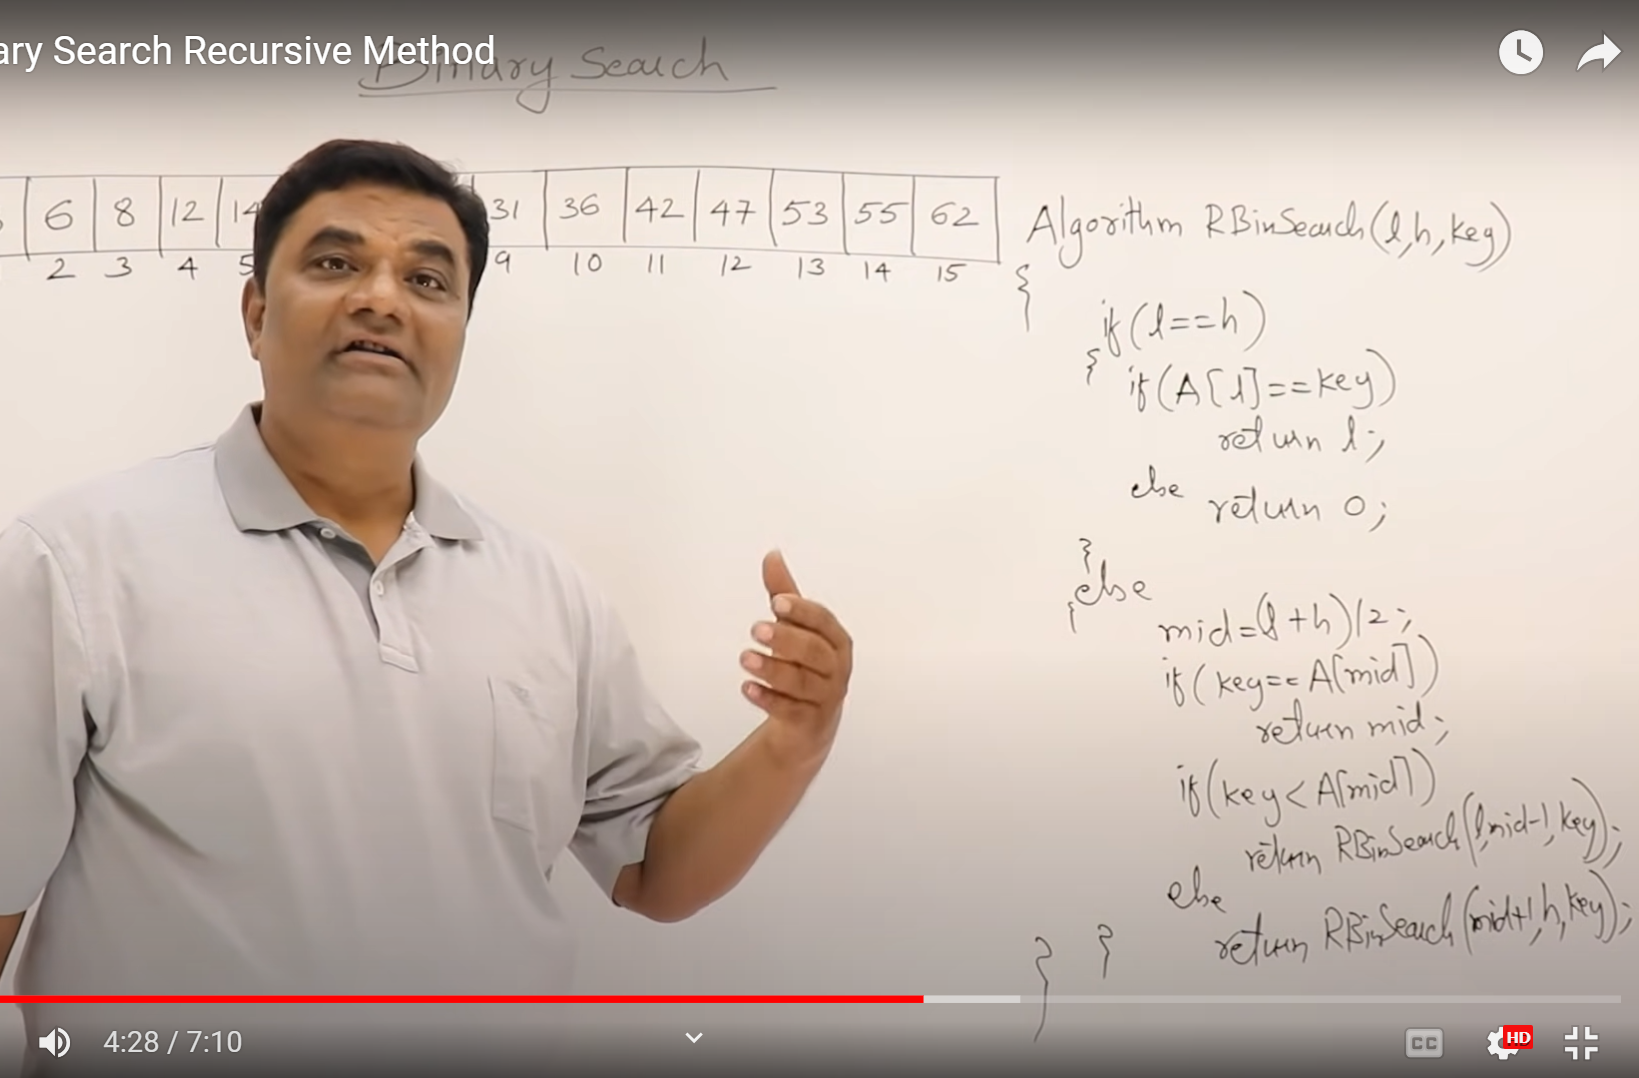 ary Search Recursive Method
Binary Search
6 8 12 14 31 36 42 47 53 55 62
2 3 4 5 9 10 11 12 13 14 15
Algorithm RBinSearch(l,h,key)
{
if(l==h)
{
if(A[l]==key)
return l;
else return 0;
}
else
{
mid=(l+h)/2;
if(key==A[mid])
return mid;
if(key<A[mid])
return RBinSearch(l,mid-1,key);
else
return RBinSearch(mid+1,h,key);
}
}
4:28 / 7:10
CC
HD